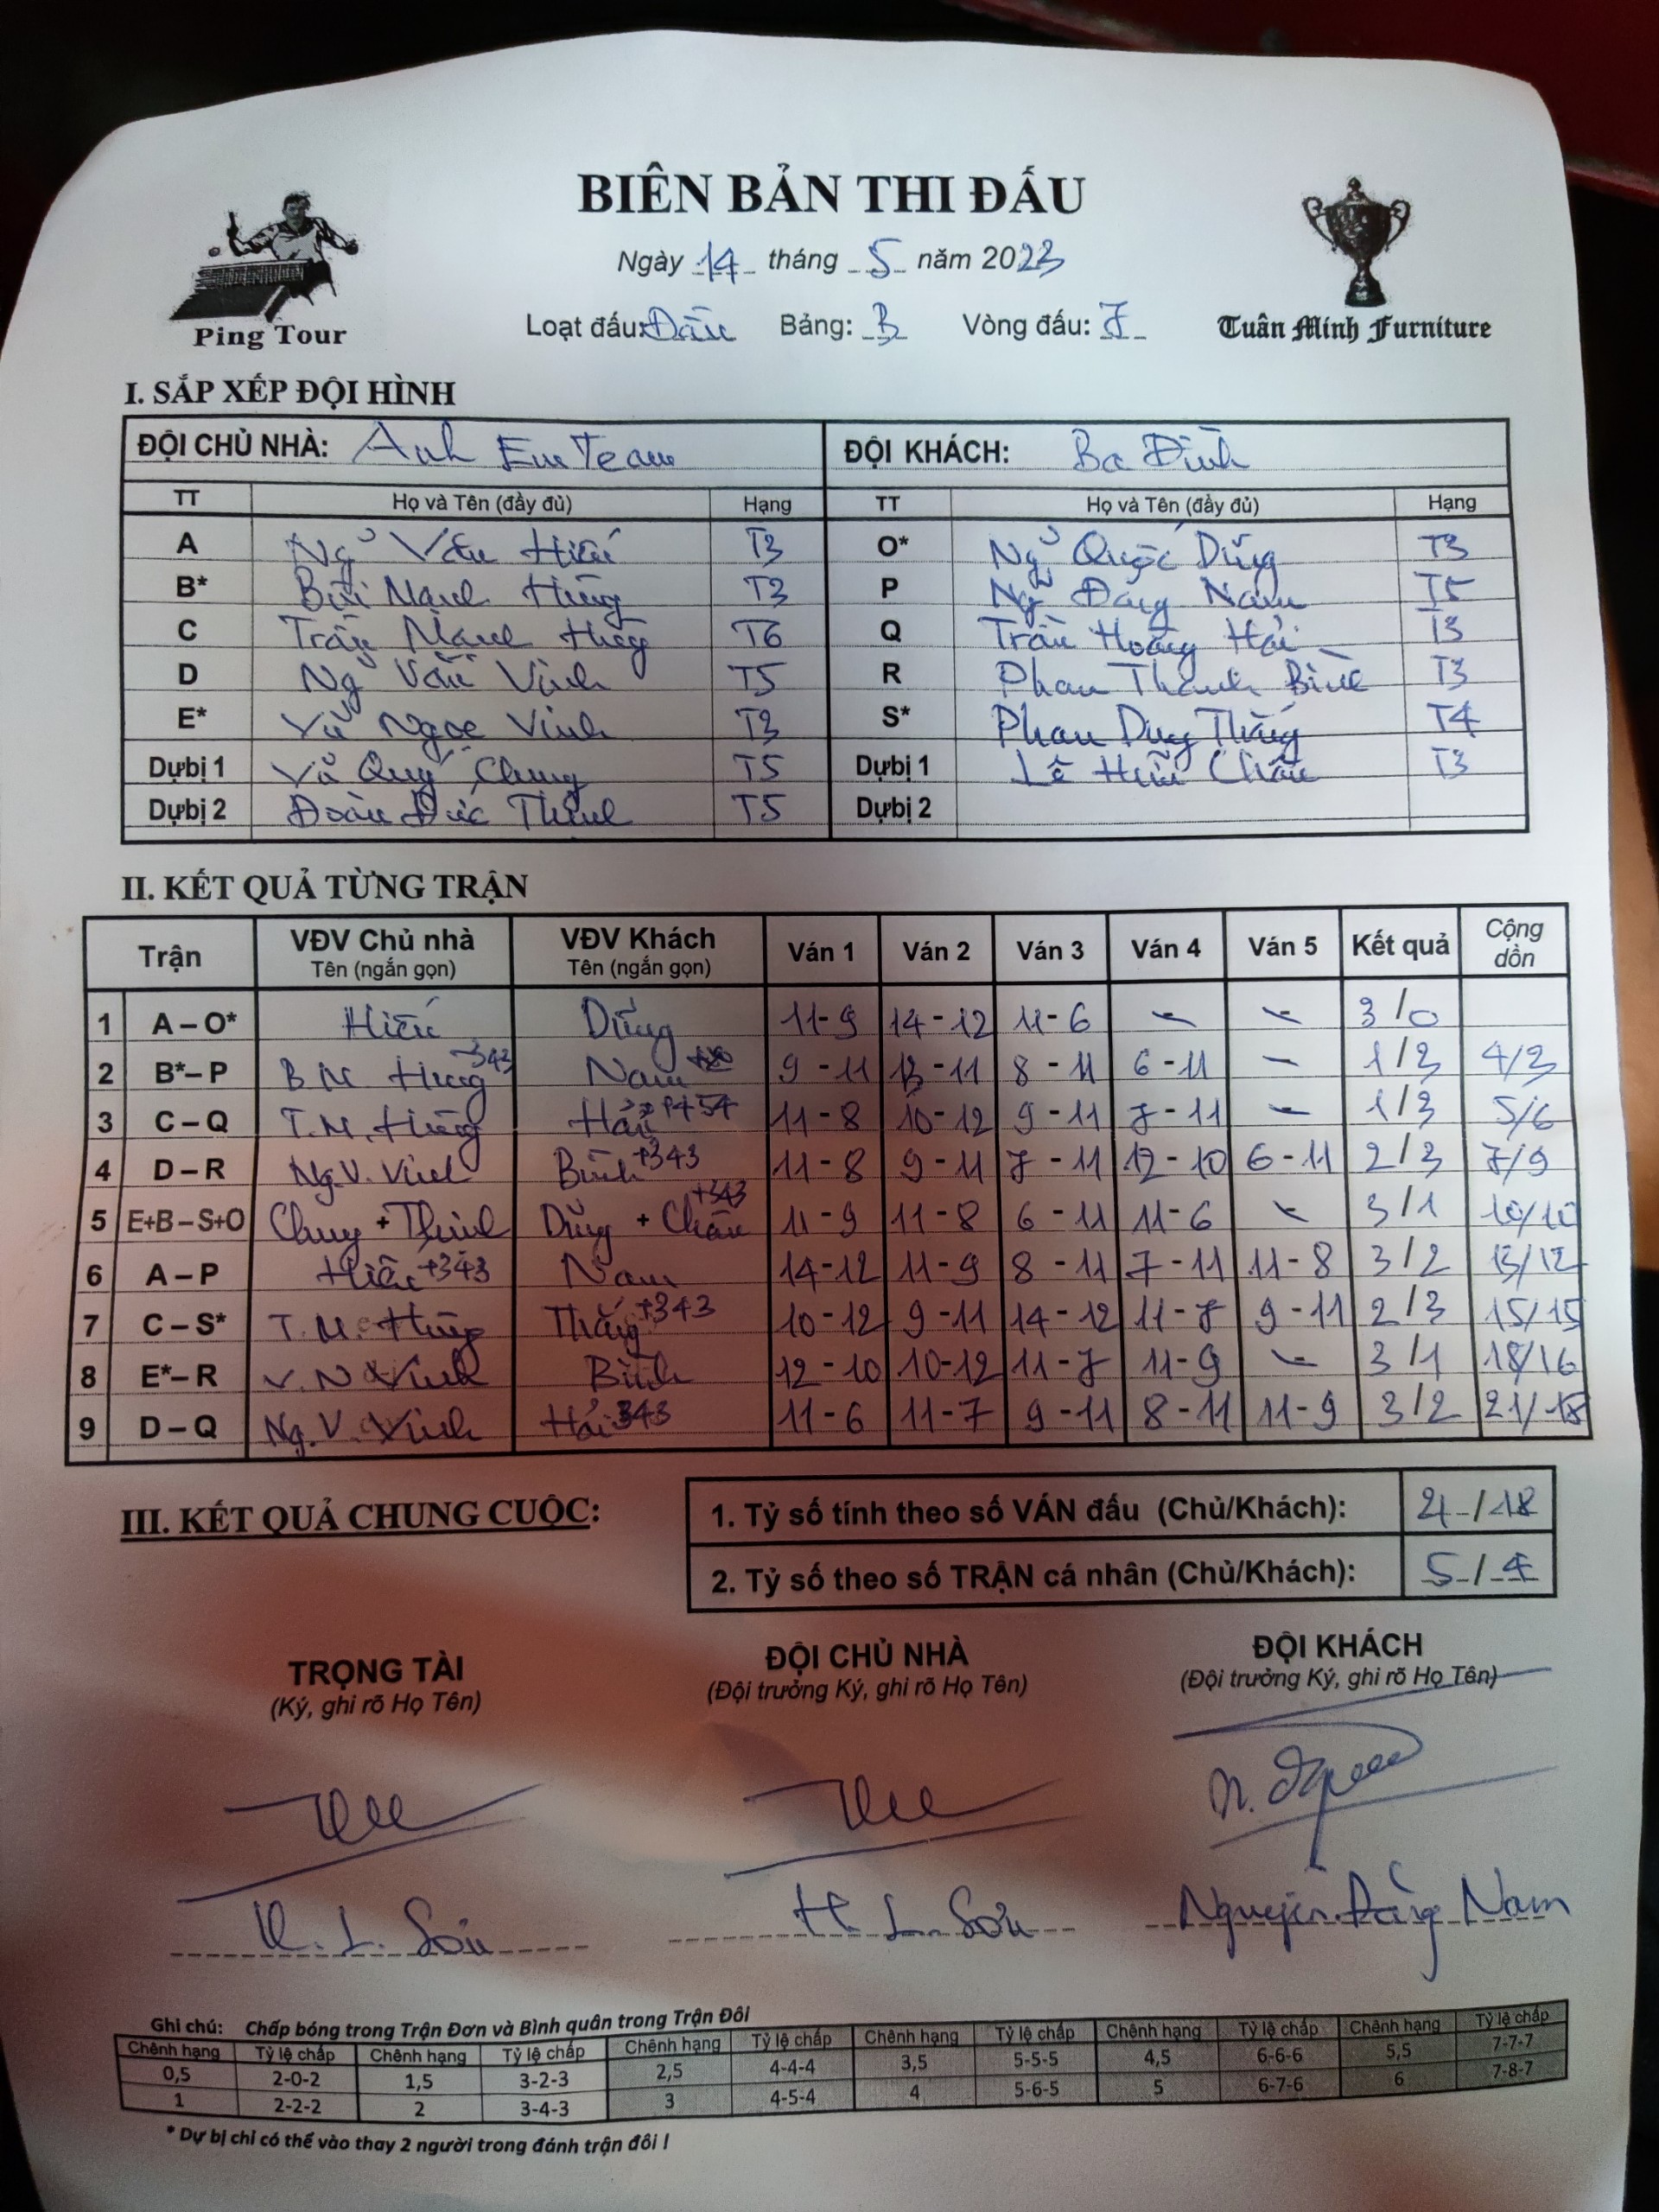 BIÊN BẢN THI ĐẤU
Ngày 14 tháng 5 năm 2023
Ping Tour
Loạt đấu: Đầu Bảng: B Vòng đấu: 7
Tuân Minh Furniture
I. SẮP XẾP ĐỘI HÌNH
ĐỘI CHỦ NHÀ: Anh Em Team ĐỘI KHÁCH: Ba Đình
TT Họ và Tên (đầy đủ) Hạng TT Họ và Tên (đầy đủ) Hạng
A Ng~ Văn Hiếu T3 O* Ng~ Quốc Dũng T3
B* Bùi Mạnh Hùng T3 P Ng~ Đăng Nam T5
C Trần Mạnh Hùng T6 Q Trần Hoàng Hải T3
D Ng~ Văn Vinh T5 R Phan Thanh Bình T3
E* Vũ Ngọc Vinh T3 S* Phan Duy Thắng T4
Dựbị 1 Vũ Quý Chung T5 Dựbị 1 Lê Hữu Châu T3
Dựbị 2 Đoàn Đức Thịnh T5 Dựbị 2
II. KẾT QUẢ TỪNG TRẬN
Trận VĐV Chủ nhà Tên (ngắn gọn) VĐV Khách Tên (ngắn gọn) Ván 1 Ván 2 Ván 3 Ván 4 Ván 5 Kết quả Cộng dồn
1 A – O* Hiếu Dũng 11-9 14-12 11-6 - - 3/0
2 B*– P B.M. Hùng +343 Nam 9-11 13-11 8-11 6-11 - 1/3 4/3
3 C – Q T.M. Hùng Hải +454 11-8 10-12 9-11 7-11 - 1/3 5/6
4 D – R Ng.V. Vinh Bình +343 11-8 9-11 7-11 12-10 6-11 2/3 7/9
5 E+B – S+O Chung + Thịnh Dũng + Châu +343 11-9 11-8 6-11 11-6 - 3/1 10/10
6 A – P Hiếu +343 Nam 14-12 11-9 8-11 7-11 11-8 3/2 13/12
7 C – S* T.M. Hùng Thắng +343 10-12 9-11 14-12 11-7 9-11 2/3 15/15
8 E*– R V.N Vinh Bình 12-10 10-12 11-7 11-9 - 3/1 18/16
9 D – Q Ng.V. Vinh Hải 343 11-6 11-7 9-11 8-11 11-9 3/2 21/18
III. KẾT QUẢ CHUNG CUỘC:
1. Tỷ số tính theo số VÁN đấu (Chủ/Khách): 21/18
2. Tỷ số theo số TRẬN cá nhân (Chủ/Khách): 5/4
TRỌNG TÀI ĐỘI CHỦ NHÀ ĐỘI KHÁCH
(Ký, ghi rõ Họ Tên) (Đội trưởng Ký, ghi rõ Họ Tên) (Đội trưởng Ký, ghi rõ Họ Tên)
H. L. Sơn H. L. Sơn Nguyễn Đăng Nam
Ghi chú: Chấp bóng trong Trận Đơn và Bình quân trong Trận Đôi
Chênh hạng Tỷ lệ chấp Chênh hạng Tỷ lệ chấp Chênh hạng Tỷ lệ chấp Chênh hạng Tỷ lệ chấp Chênh hạng Tỷ lệ chấp Chênh hạng Tỷ lệ chấp
0,5 2-0-2 1,5 3-2-3 2,5 4-4-4 3,5 5-5-5 4,5 6-6-6 5,5 7-7-7
1 2-2-2 2 3-4-3 3 4-5-4 4 5-6-5 5 6-7-6 6 7-8-7
* Dự bị chỉ có thể vào thay 2 người trong đánh trận đôi !